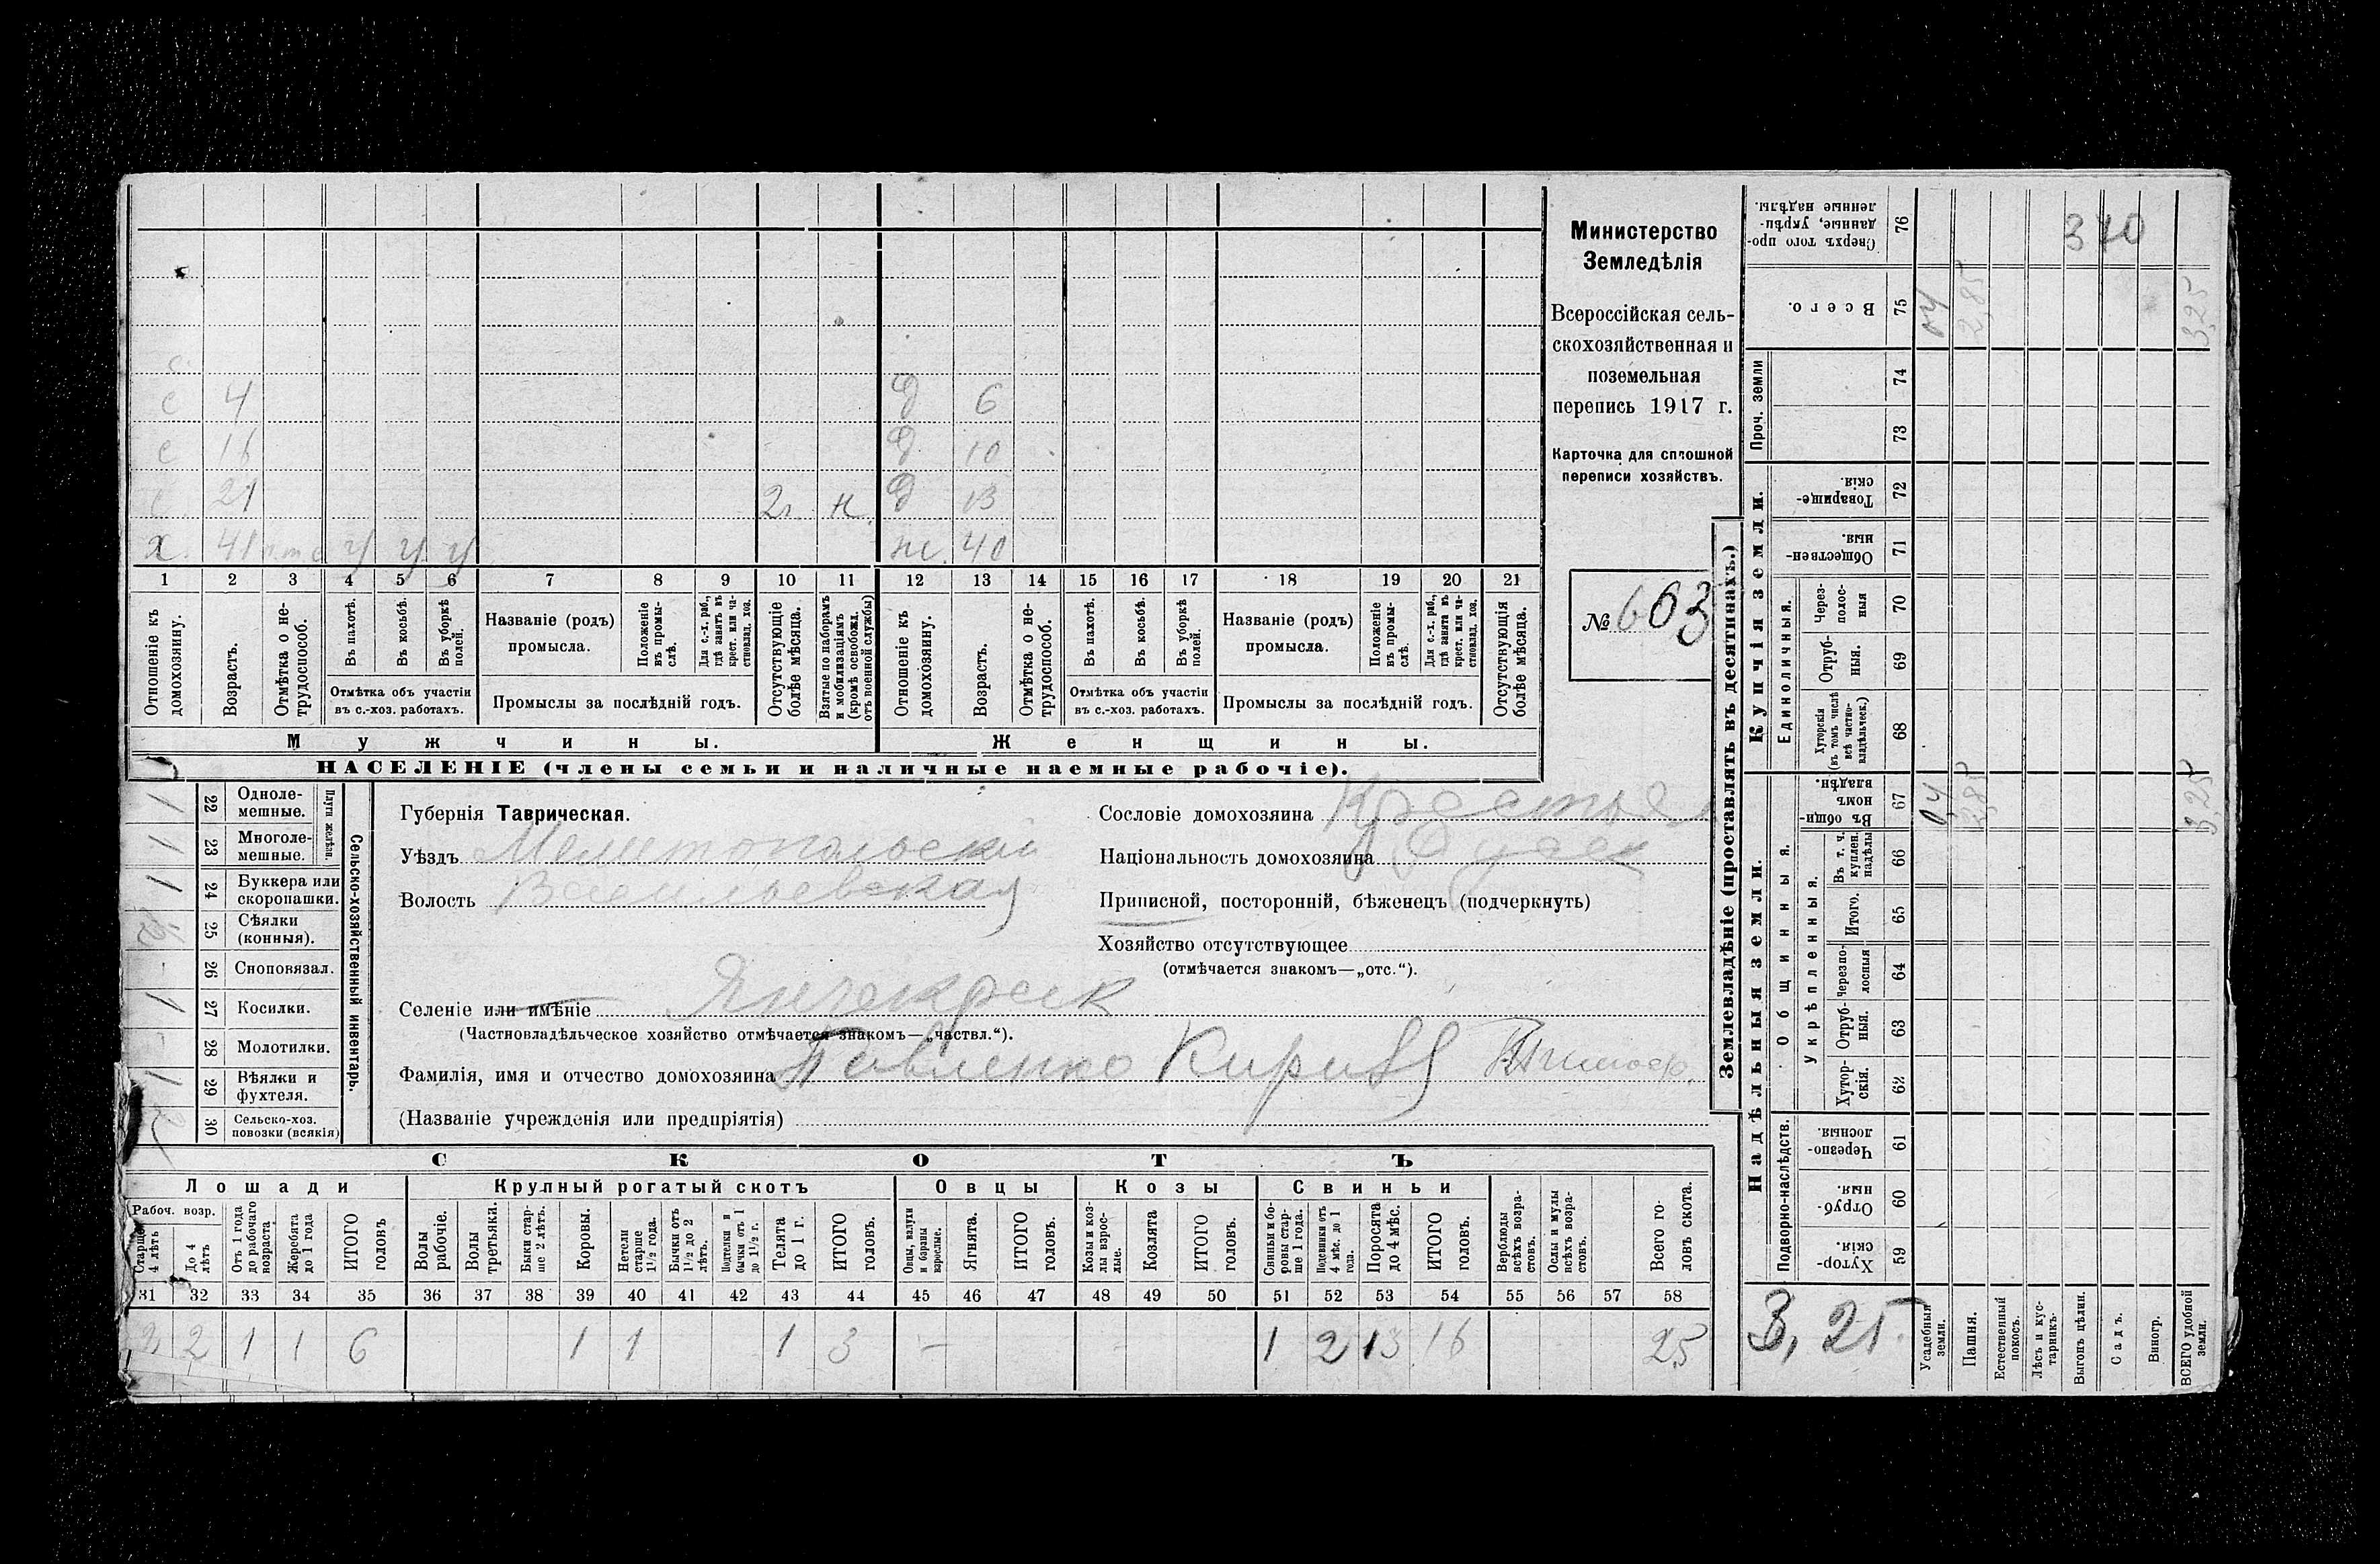 с 4 Д 6
с 16 Д 10
с 21 2г. н. Д 13
х. 41 у у у ж. 40
1 2 3 4 5 6 7 8 9 10 11 12 13 14 15 16 17 18 19 20 21
Отношеніе къ домохозяину.
Возрастъ.
Отмѣтка о не-трудоспособ.
Въ пахотѣ.
Въ косьбѣ.
Въ уборкѣ полей.
Отмѣтка объ участіи
въ с.-хоз. работахъ.
Названіе (родъ)
промысла.
Положеніе въ промы-слѣ.
Для с.-х. раб., гдѣ занятъ въ крест. или ча-стновлад. хоз.
Промыслы за послѣдній годъ.
Отсутствующіе болѣе мѣсяца.
Взятые по наборамъ и мобилизаціямъ (кромѣ освобожд. отъ военной службы)
Отношеніе къ домохозяину.
Возрастъ.
Отмѣтка о не-трудоспособ.
Въ пахотѣ.
Въ косьбѣ.
Въ уборкѣ полей.
Отмѣтка объ участіи
въ с.-хоз. работахъ.
Названіе (родъ)
промысла.
Положеніе въ промы-слѣ.
Для с.-х. раб., гдѣ занята въ крест. или ча-стновлад. хоз.
Промыслы за послѣдній годъ.
Отсутствующія болѣе мѣсяца.
Мужчины.
Женщины.
НАСЕЛЕНІЕ (члены семьи и наличные наемные рабочіе).
Министерство
Земледѣлія
Всероссійская сель-
скохозяйственная и
поземельная
перепись 1917 г.
Карточка для сплошной
переписи хозяйствъ.
№ 663
1 22 Одноле-мешные.
1 23 Многоле-мешные.
Плуги желѣзн.
1 24 Буккера или скоропашки.
25 Сѣялки (конныя).
- 26 Сноповязал.
1 27 Косилки.
- 28 Молотилки.
1 29 Вѣялки и фухтеля.
2 30 Сельско-хоз. повозки (всякія)
Сельско-хозяйственный инвентарь.
Губернія Таврическая.
Уѣздъ Мелитопольскій
Волость Васильевская
Сословіе домохозяина Крестьян
Національность домохозяина
Приписной, посторонній, бѣженецъ (подчеркнуть)
Хозяйство отсутствующее
(отмѣчается знакомъ—„отс.“).
Селеніе или имѣніе Янчекрак
(Частновладѣльческое хозяйство отмѣчается знакомъ—„частвл.“).
Фамилія, имя и отчество домохозяина Павленко Кирилл Тимоф.
(Названіе учрежденія или предпріятія)
СКОТЪ
Лошади
Крупный рогатый скотъ
Овцы
Козы
Свиньи
Рабоч. возр.
Старше 4 лѣтъ
До 4 лѣтъ
Отъ 1 года до рабочаго возраста
Жеребята до 1 года
ИТОГО головъ
Волы рабочіе.
Волы третьяки.
Быки стар-ше 2 лѣтъ.
Коровы.
Нетели старше 1½ года.
Бычки отъ 1½ до 2 лѣтъ.
Подтелки и бычки отъ 1 до 1½ г.
Телята до 1 г.
ИТОГО головъ.
Овцы, валухи и бараны взрослые.
Ягнята.
ИТОГО головъ.
Козы и коз-лы взрос-лые.
Козлята
ИТОГО головъ.
Свиньи и бо-ровы стар-ше 1 года.
Подсвинки отъ 4 мѣс. до 1 года.
Поросята до 4 мѣс.
ИТОГО головъ.
Верблюды всѣхъ возра-стовъ.
Ослы и мулы всѣхъ возра-стовъ.
Всего го-ловъ скота.
31 32 33 34 35 36 37 38 39 40 41 42 43 44 45 46 47 48 49 50 51 52 53 54 55 56 57 58
2 2 1 1 6 1 1 1 3 - - 1 2 13 16 25
Землевладѣніе (проставлять въ десятинахъ.)
Купчія земли.
Надѣльныя земли.
Сверхъ того про-данные, укрѣп-ленные надѣлы. 76 340
Всего. 75 04 2,85 3,25
Проч. земли
74
73
Товарище-скія. 72
Обществен-ныя. 71
Единоличныя.
Через-полос-ныя 70
Отруб-ныя. 69
Хуторскія (въ томъ числѣ всѣ частно-владѣльческ.) 68
Общинныя.
Въ общи-номъ владѣн. 67 04 2,85 3,25
Укрѣпленныя.
Въ т. ч. куплен. надѣлы 66
Итого. 65
Черезпо-лосныя 64
Отруб-ныя. 63
Хутор-скія. 62
Подворно-наслѣдств.
Черезпо-лосныя. 61
Отруб-ныя. 60
Хутор-скія. 59
3,25
Усадебныя земли.
Пашня.
Естественный покосъ.
Лѣсъ и кус-тарникъ.
Выгонъ цѣлин.
Садъ.
Виногр.
ВСЕГО удобной земли.